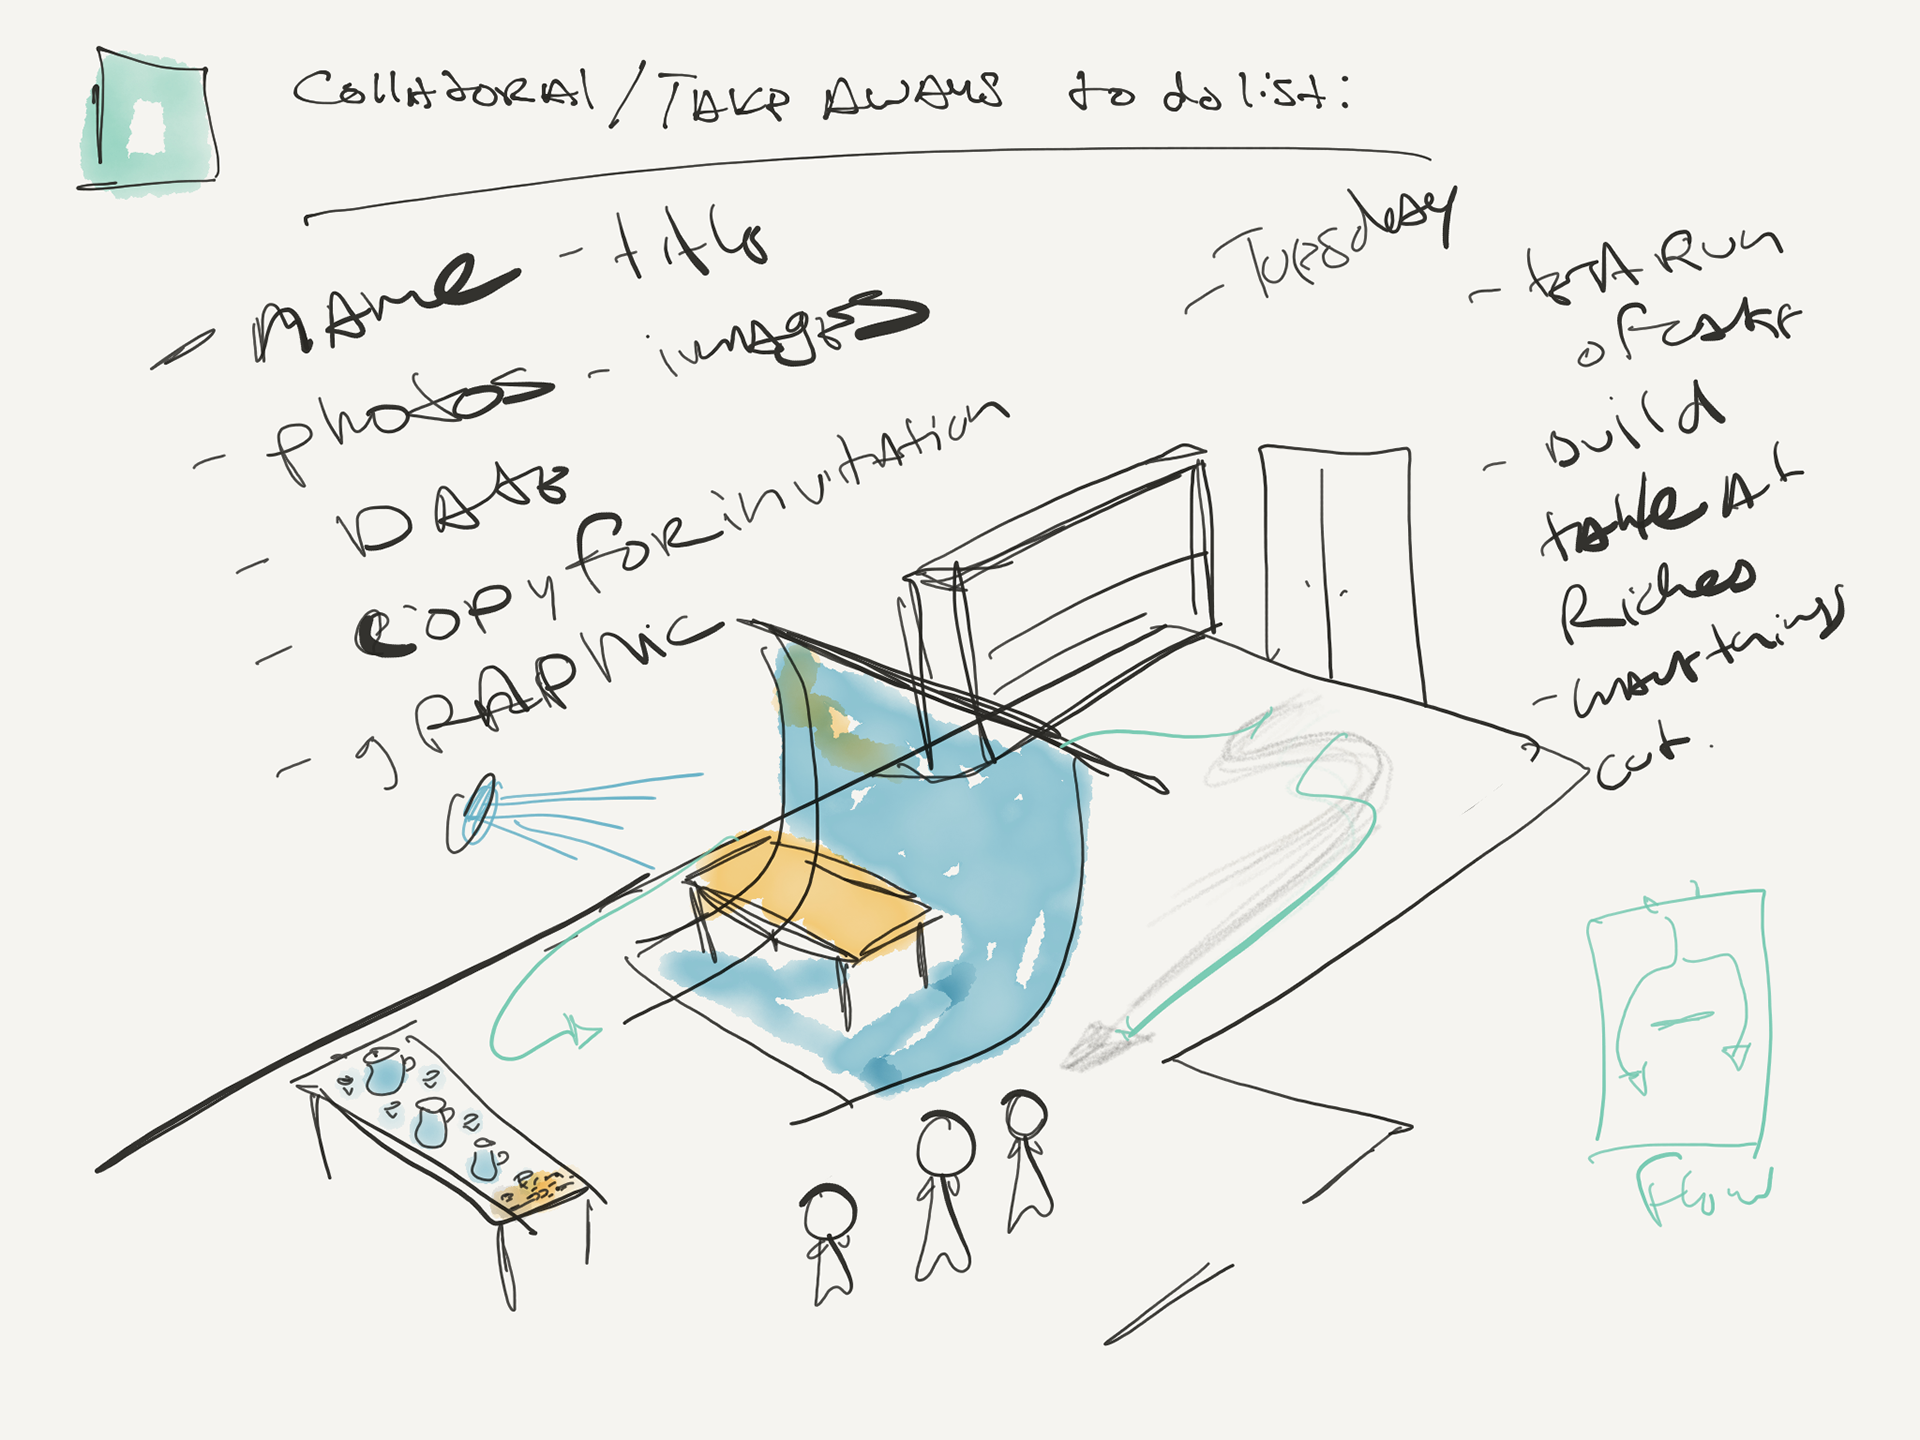 Collatoral / Take Aways to do list:
- name - title
- photos - images
- Date
- Copy for invitation
- graphic
- Tuesday
- Run
of
- Build
table At
Riches
- things
out.
Flow